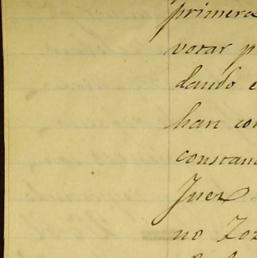 primera
votar p
dando e
han con
constan
Juez
no Zoz